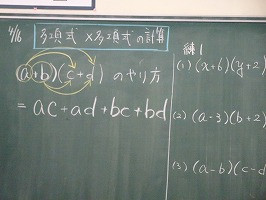 4/16 多項式×多項式の計算
(a+b)(c+d) のやり方
= ac+ad+bc+bd
練1
(1) (x+6)(y+2)
(2) (a-3)(b+2)
(3) (a-b)(c-d